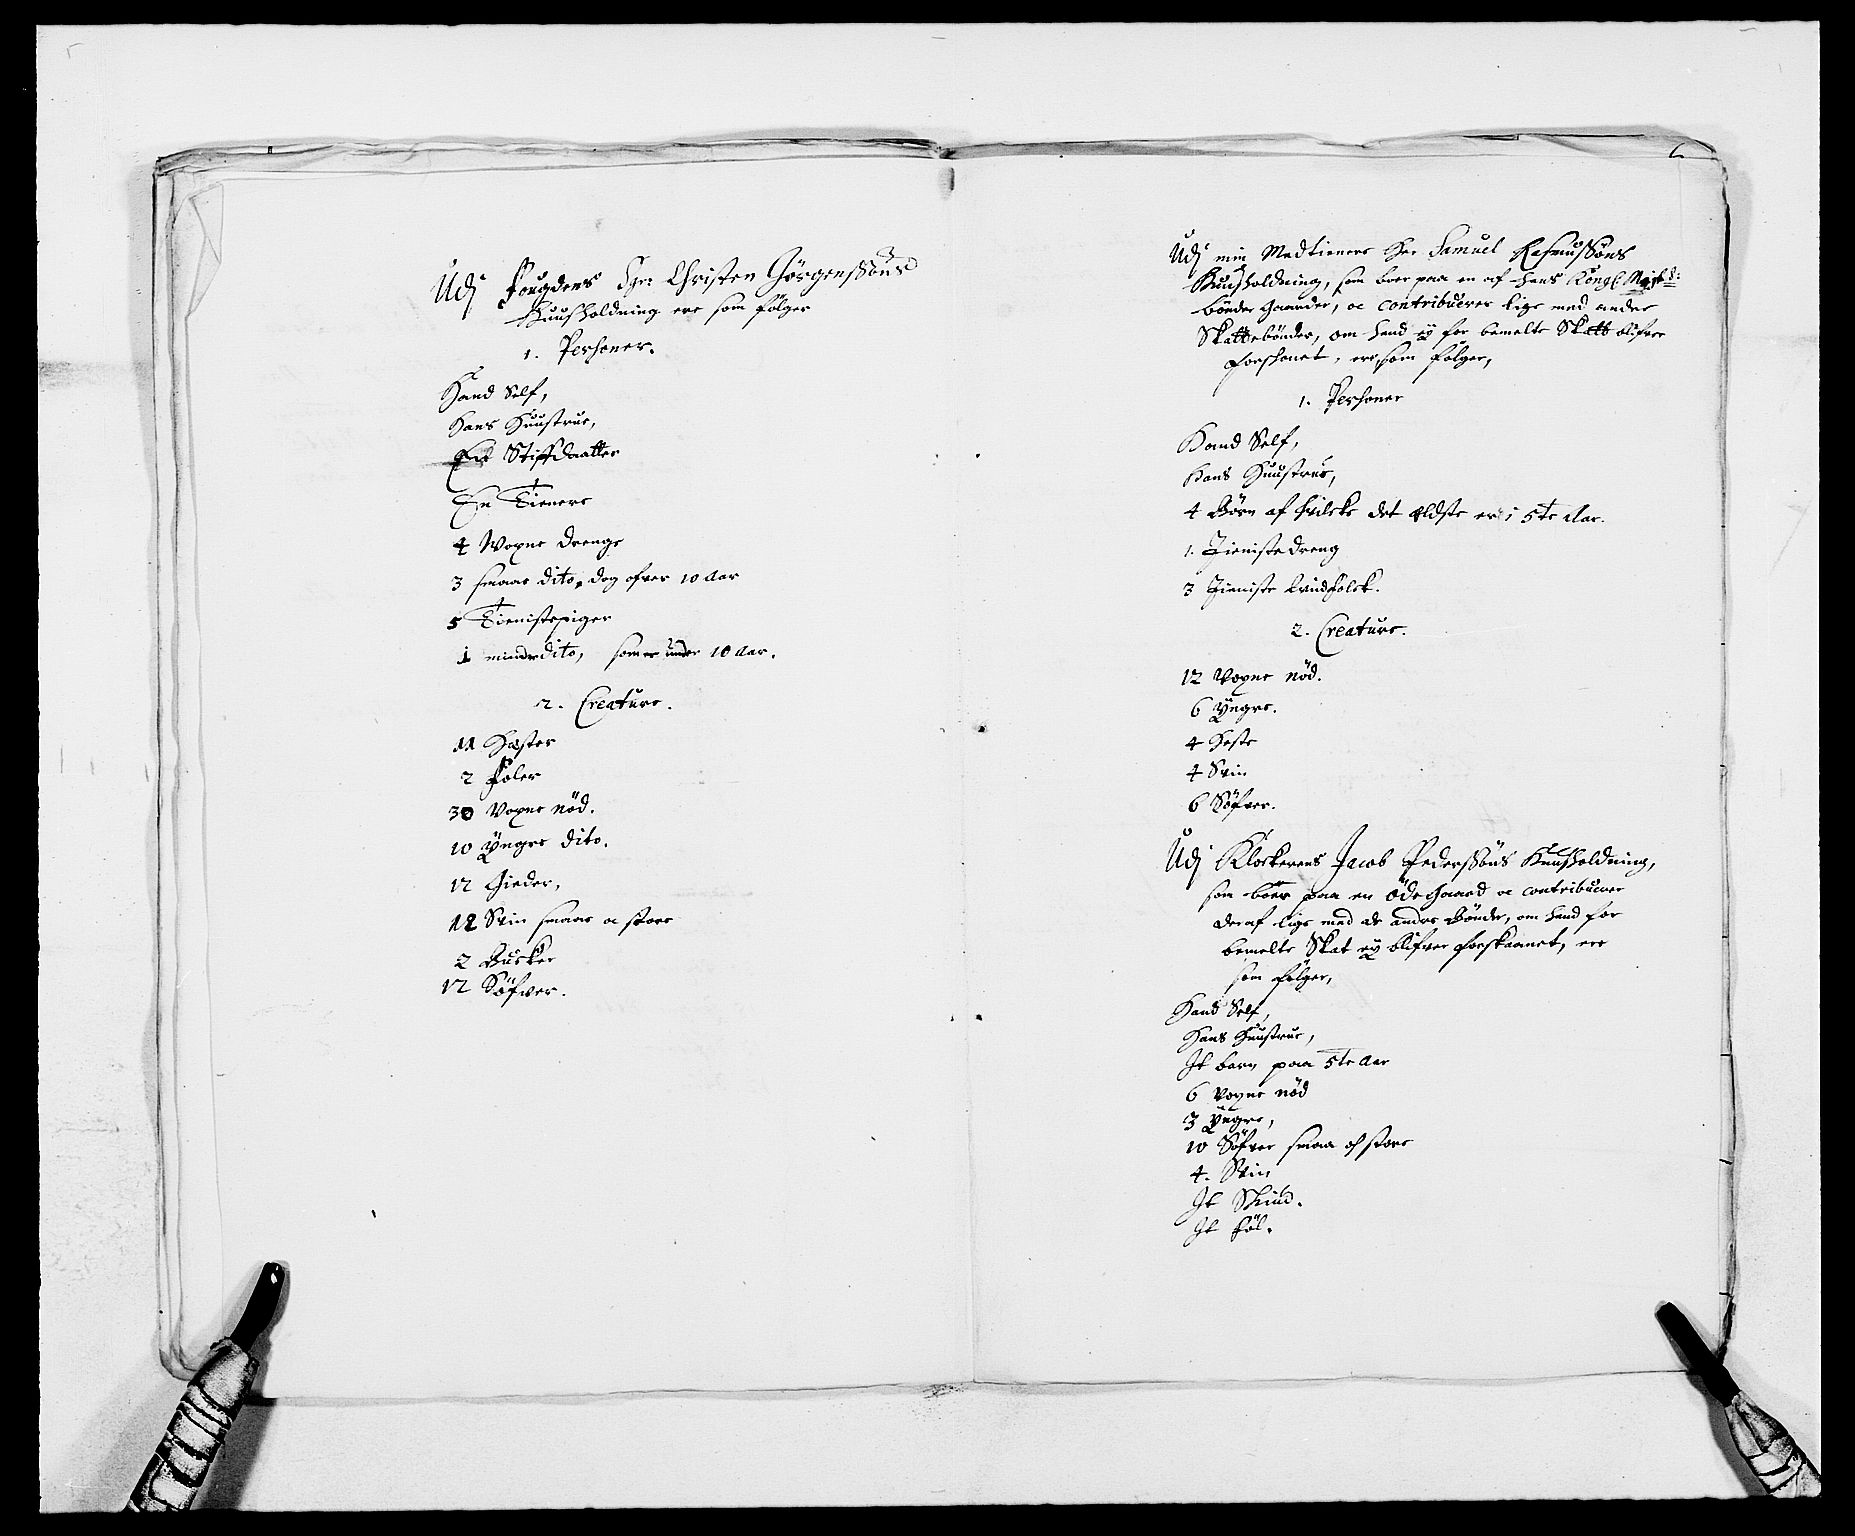 Udj Fougdens Sgr: Christen Jörgenssöns
Huusholdning ere som fölger
1. Persohner.
Hand Self,
Hans Huustrue,
En Stiffdaatter
En Tienere
4 Woxne Drenge
3 smaae dito, dog ofver 10 Aar
5 Tienistepiger
1 mindre dito, som er under 10 Aar.
2. Creature.
11 Hæster
2 Föler
30 Voxne nöd.
10 Yngre dito.
12 Gieder,
12 Svin smaae oc store
2 Bucker
12 Söfver.
Udj min Medtieners Her Samuel Rasmussöns
Huusholdning, som boer paa en af hans Kongl. Mayts:
bönder Gaarder, oc contribuerer lige med andre
Skattebönder, om hand ey for bemelte Skatt blifver
forskonet, ere som fölger,
1. Persohner
Hand Self,
Hans Huustrue,
4 Börn af hvilcke det ældste er i 5te Aar.
1. Tienistedreng
3 Tieniste Qvindfolck.
2. Creature.
12 Voxne nöd.
6 Yngre.
4 Heste
4 Svin
6 Söfver.
Udj Klockerens Jacob Pederssöns Huusholdning,
som boer paa en Ödegaard oc contribuerer
deraf lige med de andre Bönder, om hand for
bemelte Skat ey blifver forskaanet, ere
som fölger,
Hand Self,
Hans Huustrue,
It barn paa 5te Aar
6 Voxne nöd
3 Yngre,
10 Söfver smaa oc store
4. Svin
It
It Föl.